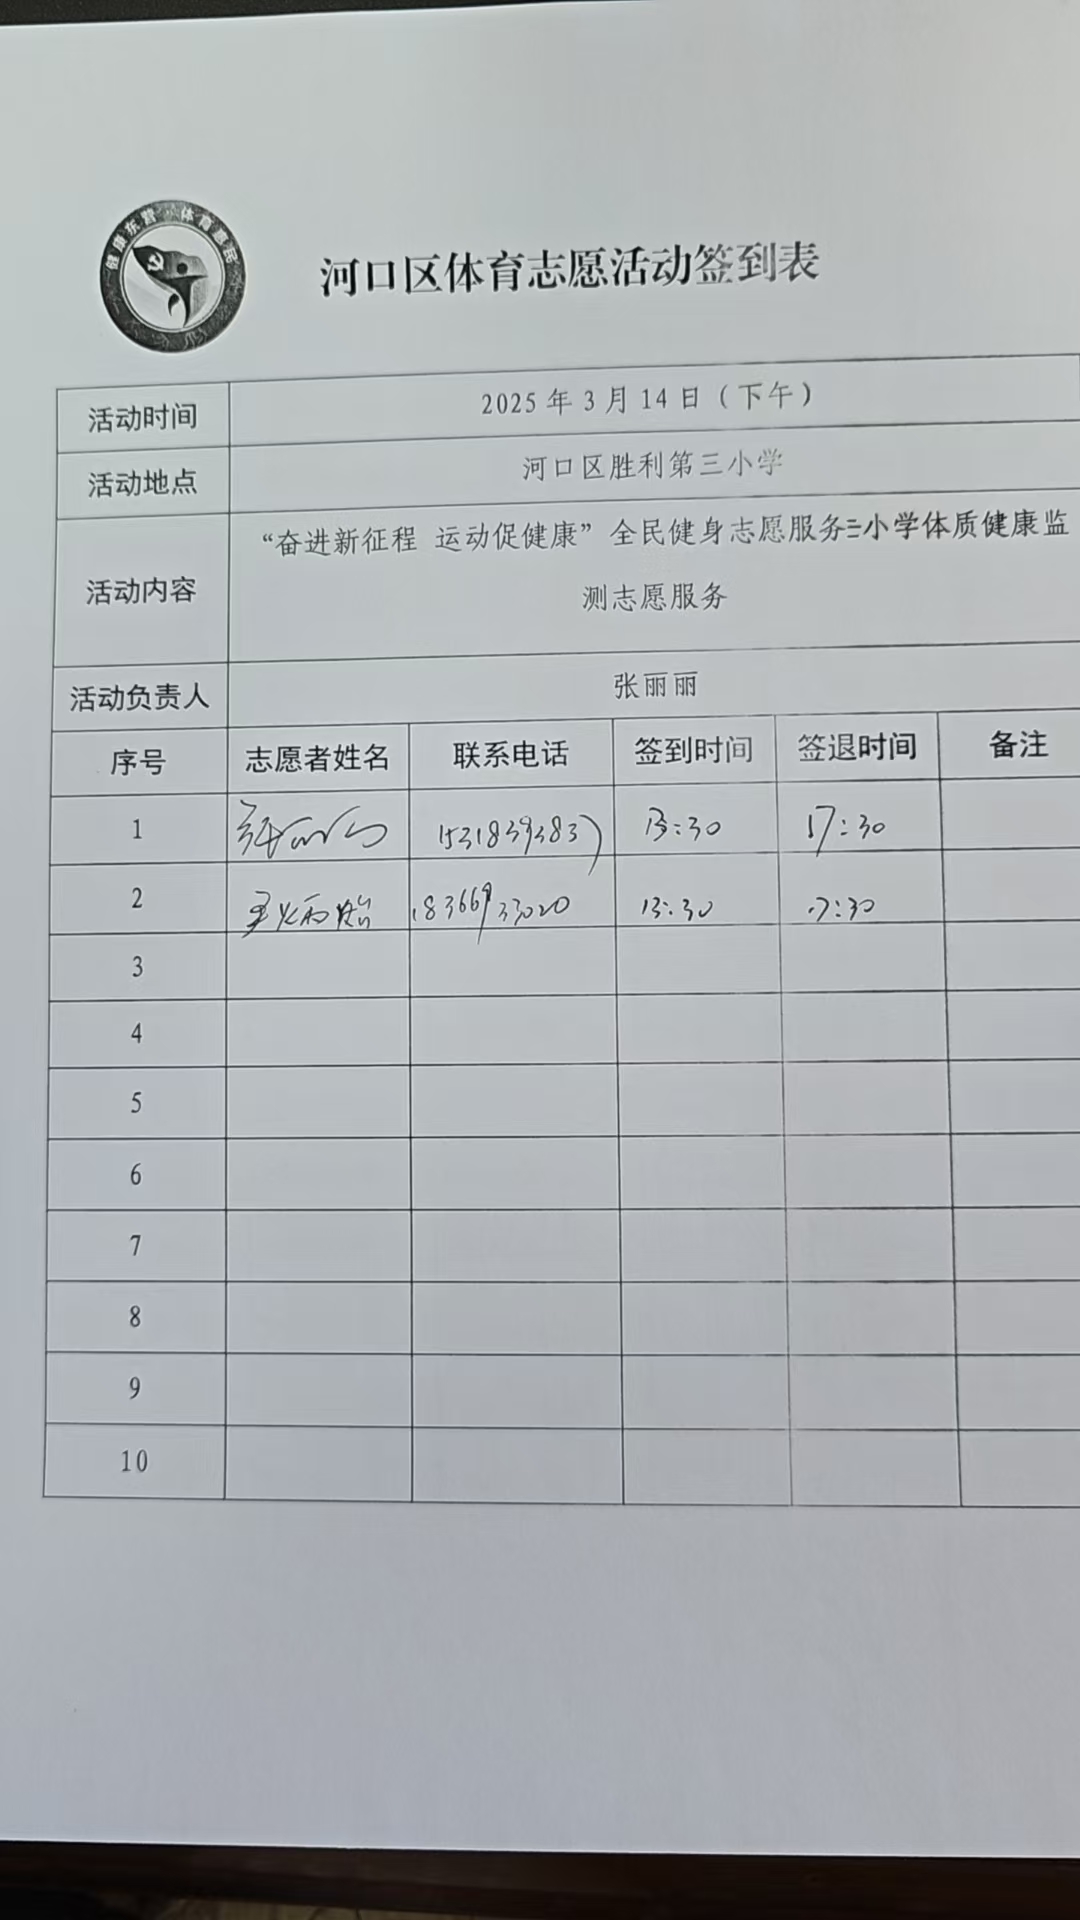 健康东营 体育惠民
河口区体育志愿活动签到表
活动时间 2025年3月14日（下午）
活动地点 河口区胜利第三小学
活动内容 “奋进新征程 运动促健康”全民健身志愿服务三小学体质健康监
测志愿服务
活动负责人 张丽丽
序号 志愿者姓名 联系电话 签到时间 签退时间 备注
1 张丽丽 13:30 17:30
2 18366933020 13:30 17:30
3
4
5
6
7
8
9
10